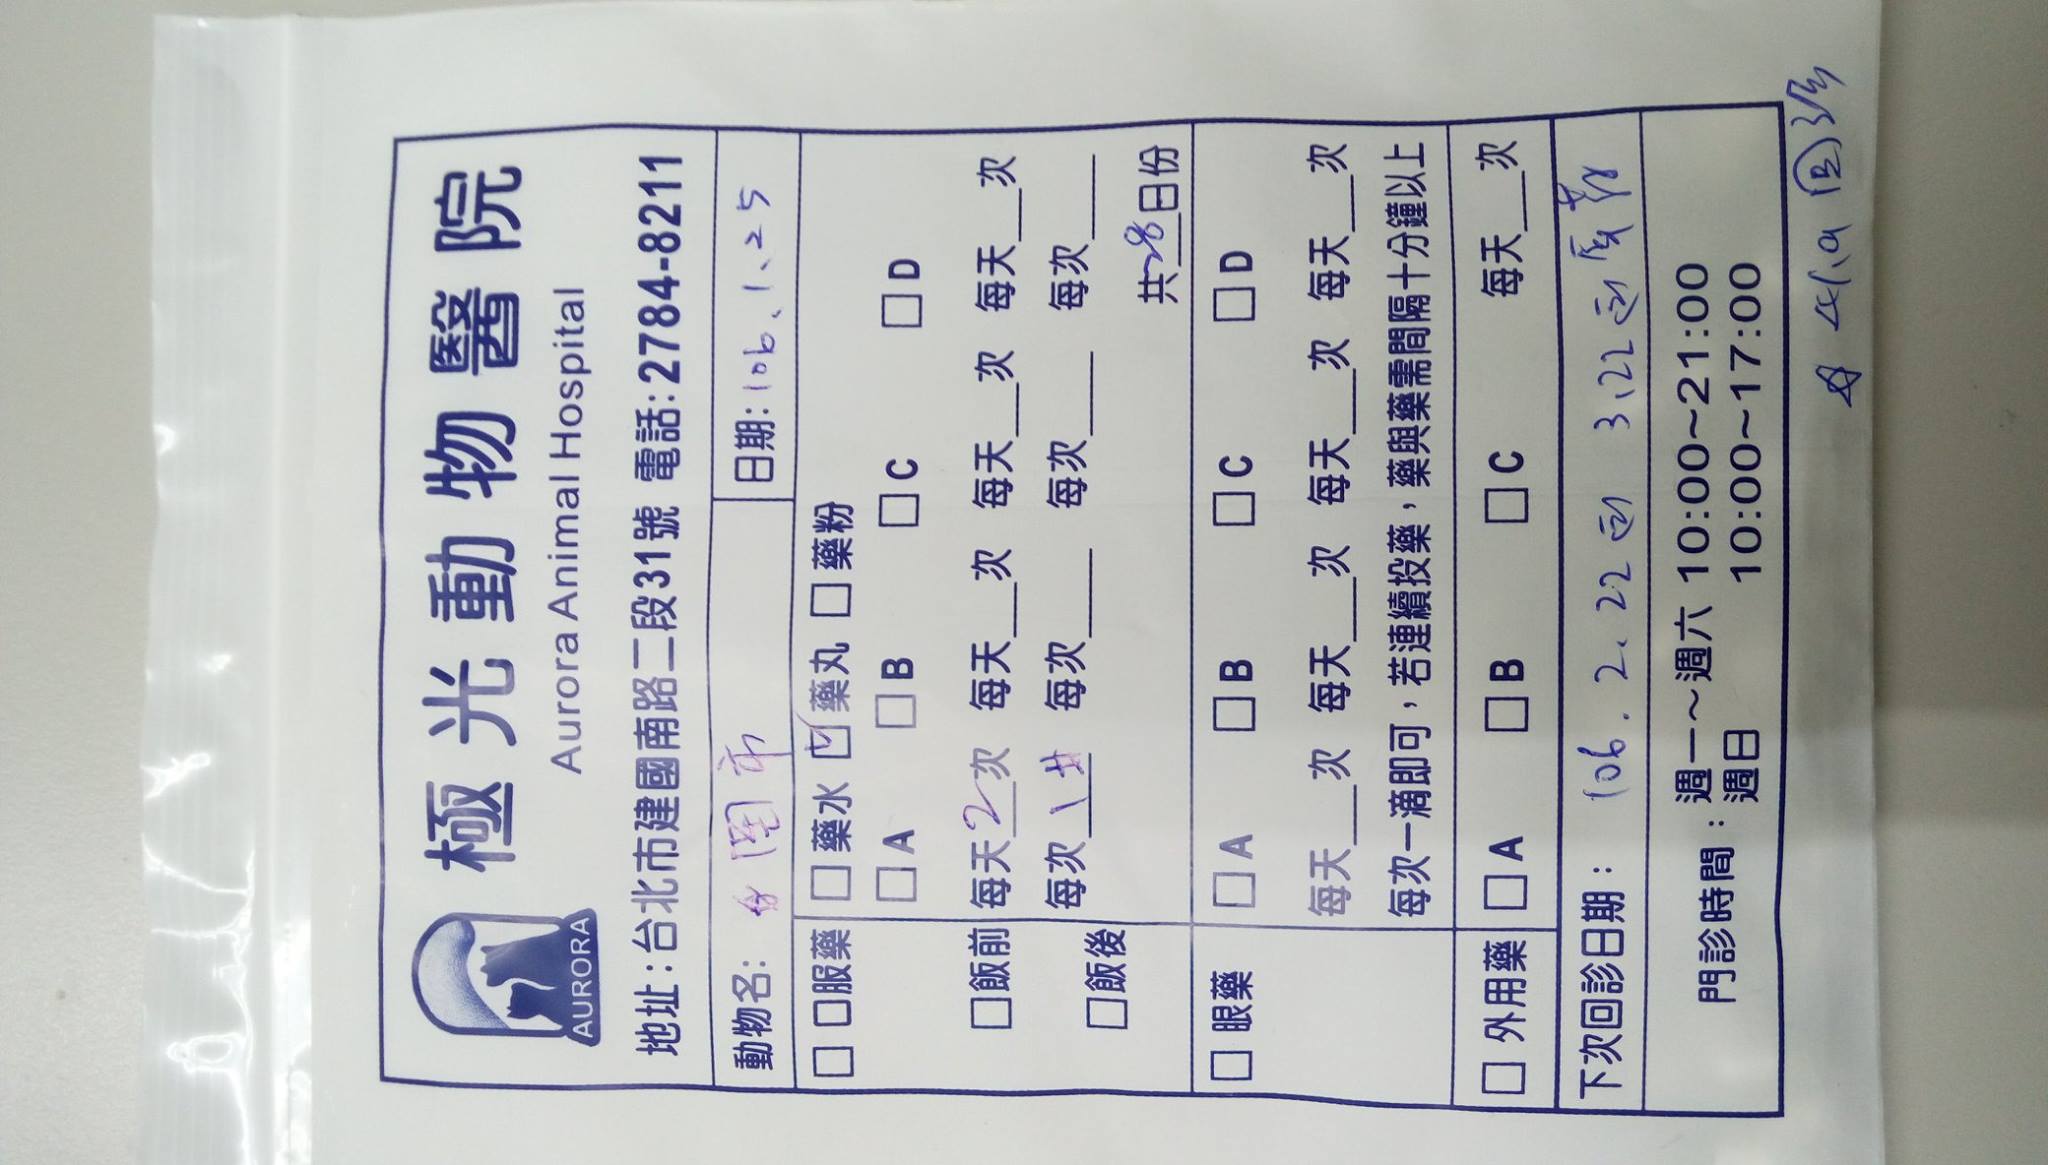 極光動物醫院
Aurora Animal Hospital
AURORA
地址:台北市建國南路二段31號 電話:2784-8211
動物名:
日期: 106、1、25
□ 口服藥 □ 藥水 ☑ 藥丸 □ 藥粉
□A □B □C □D
□飯前 每天2次 每天__次 每天__次 每天__次
□飯後 每次1 每次___ 每次___ 每次___
共28日份
□ 眼藥 □A □B □C □D
每天__次 每天__次 每天__次 每天__次
每次一滴即可，若連續投藥，藥與藥需間隔十分鐘以上
□ 外用藥 □A □B □C 每天__次
下次回診日期: 106.2.22 3.22
門診時間:週一～週六 10:00~21:00
週日 10:00~17:00